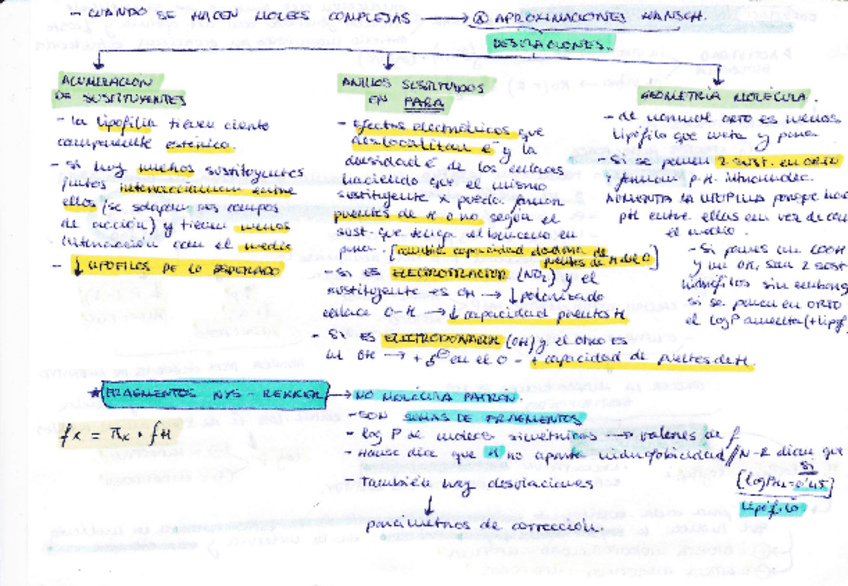 - CUANDO SE HACEN MOLES COMPLEJAS → APROXIMACIONES HANSCH.
DESVIACIONES.
ACUMULACIÓN
DE SUSTITUYENTES
- la lipofilia tienen cierto
componente estérico.
- Si hay muchos sustituyentes
juntos interaccionan entre
ellos (se solapan sus campos
de acción) y tienen menos
interacción con el medio
- ↓ LIPOFILOS DE LO ESPERADO
ANILLOS SUSTITUIDOS
EN PARA
- Efectos electrónicos que
deslocalizan e⁻ y la
densidad e⁻ de los enlaces
haciendo que el mismo
sustituyente X pueda formar
puentes de H o no según el
sust. que tenga el benceno en
para. [cambia capacidad dadora de
puentes de H del O]
- Si es ELECTROATRACTOR (NO₂) y el
sustituyente es OH → ↓ polarizado
enlace O-H → ↓ capacidad puentes H
- Si es ELECTRODONADOR (OH) y el otro es
un OH → + δ⊖ en el O - + capacidad de puentes de H.
GEOMETRÍA MOLÉCULA.
- de normal ORTO es menos
lipófila que meta y para
- Si se ponen 2 SUST. EN ORTO
+ forman p.H. intramolec.
AUMENTA LA LIPOFILIA porque hace
pH entre ellos en vez de con
el medio.
- Si pones un COOH
y un OH, son 2 sust
hidrófilos sin embargo
si se ponen en ORTO
el logP aumenta (+lipóf
* FRAGMENTOS NYS - REKKER → NO MOLÉCULA PATRÓN.
fx = πx + fH
- SON SUMAS DE FRAGMENTOS
- log P de moleс simétricas → valores de f
- Hansc dice que H no aporta hidrofobicidad // N-R dicen que
SI
[logPH₂=0'45]
Lipófilo
- También hay desviaciones
↓
parámetros de corrección.